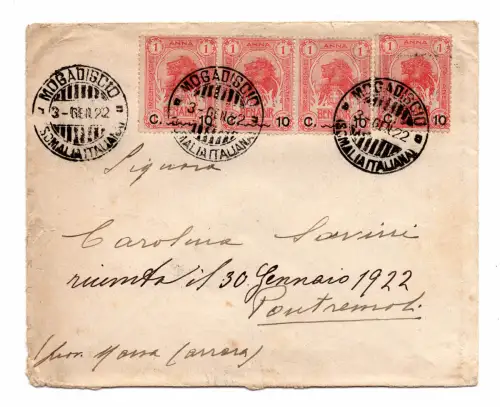 1 ANNA 1 1 ANNA 1 1 ANNA 1 1 ANNA 1
C. 10 C. 10 C. 10 C. 10
MOGADISCIO
3-GEN.22
SOMALIA ITALIANA
MOGADISCIO
3-GEN.22
SOMALIA ITALIANA
MOGADISCIO
GEN.22
SOMALIA ITALIANA
Signora
Carolina Savini
ricevuta il 30 Gennaio 1922
Pontremoli
Massa (Carrara)